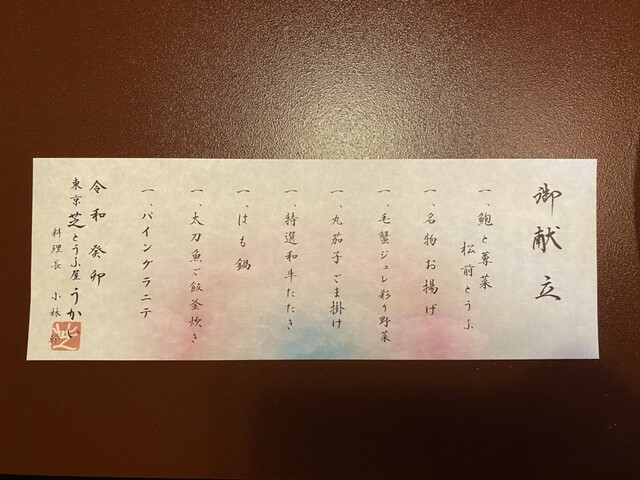 御献立
一、鮑と蓴菜
松前とうふ
一、名物お揚げ
一、毛蟹ジュレ彩り野菜
一、丸茄子ごま掛け
一、特選和牛たたき
一、はも鍋
一、太刀魚ご飯釜炊き
一、パイングラニテ
令和癸卯
東京芝とうふ屋うかい
料理長 小林